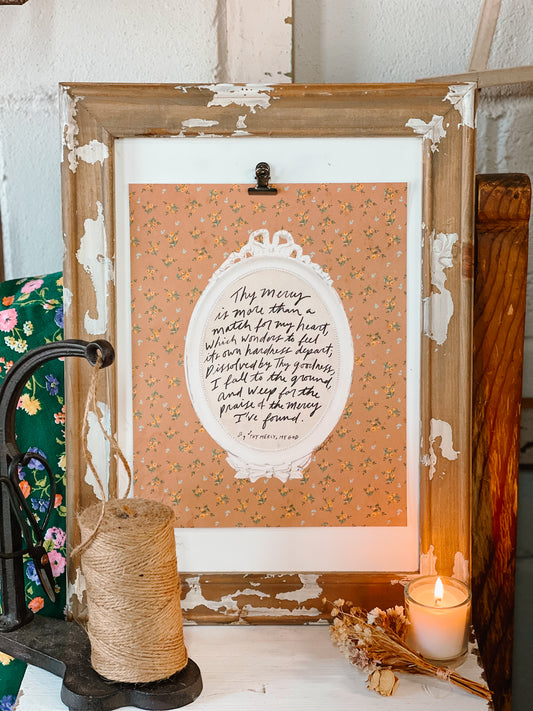 Thy mercy
is more than a
match for my heart,
which wonders to feel
its own hardness depart;
Dissolved by Thy goodness,
I fall to the ground
and weep for the
praise of the mercy
I've found.
By "THY MERCY, MY GOD